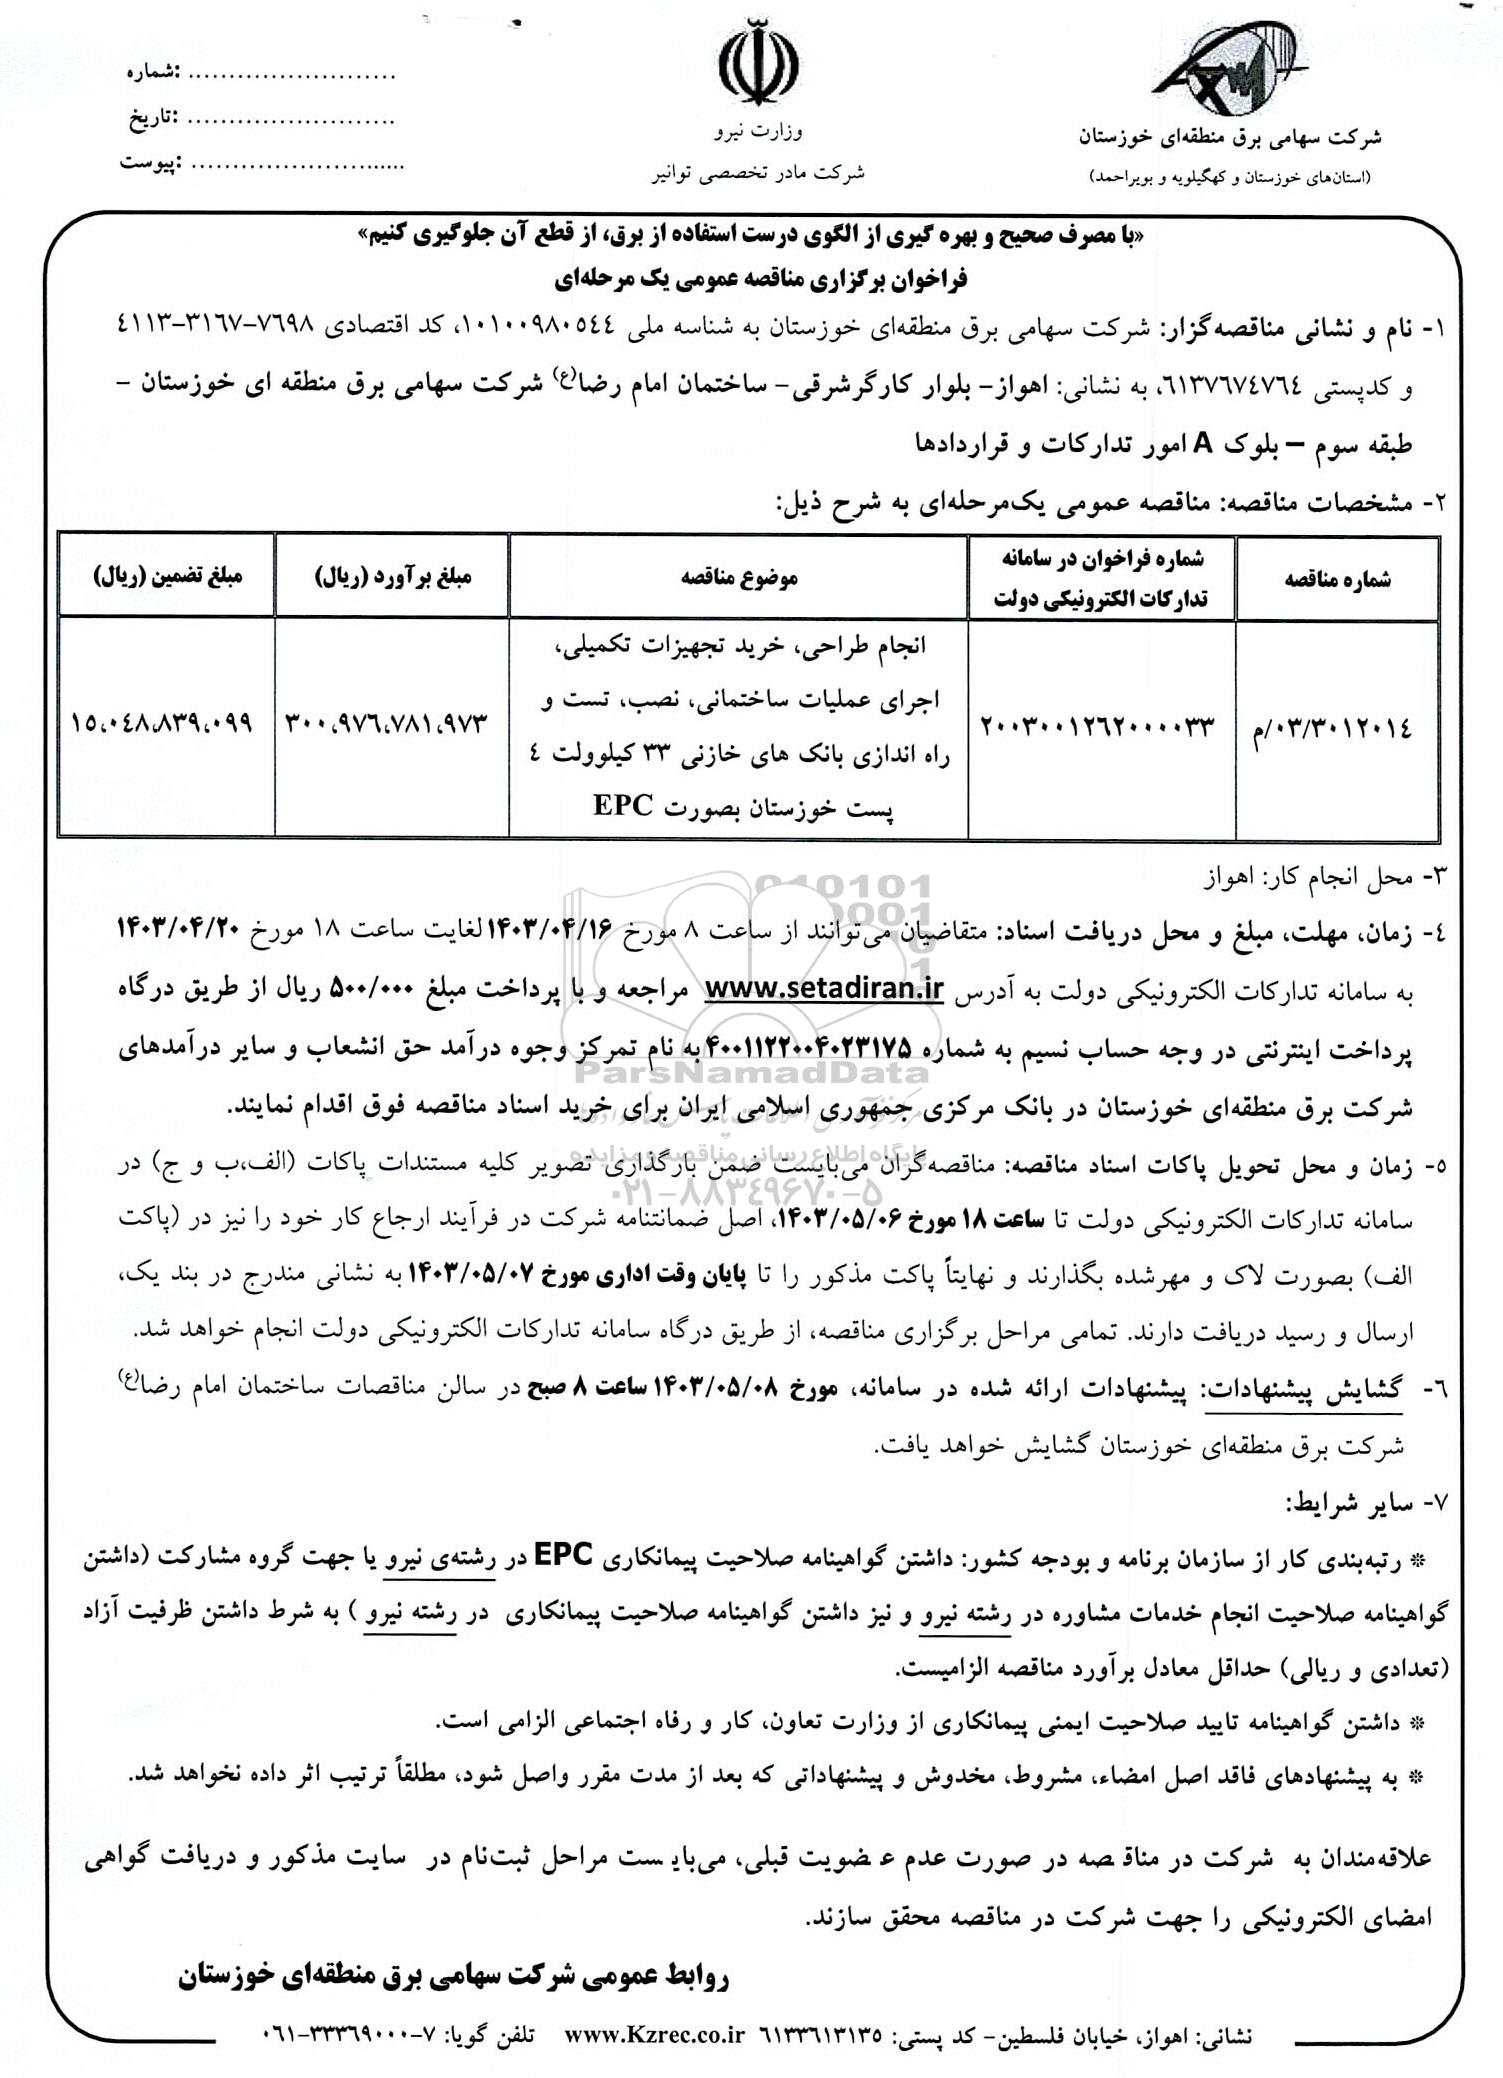 شرکت سهامی برق منطقه‌ای خوزستان
(استان‌های خوزستان و کهگیلویه و بویراحمد)
وزارت نیرو
شرکت مادر تخصصی توانیر
شماره: ..........................
تاریخ: ..........................
پیوست: ..........................
«با مصرف صحیح و بهره گیری از الگوی درست استفاده از برق، از قطع آن جلوگیری کنیم»
فراخوان برگزاری مناقصه عمومی یک مرحله‌ای
۱- نام و نشانی مناقصه‌گزار: شرکت سهامی برق منطقه‌ای خوزستان به شناسه ملی ۱۰۱۰۰۹۸۰۵٤٤، کد اقتصادی ۷۶۹۸-۳۱۶۷-٤۱۱۳
و کدپستی ۶۱۳۷۶۷٤۷۶٤، به نشانی: اهواز- بلوار کارگرشرقی- ساختمان امام رضا(ع) شرکت سهامی برق منطقه ای خوزستان -
طبقه سوم – بلوک A امور تدارکات و قراردادها
۲- مشخصات مناقصه: مناقصه عمومی یک‌مرحله‌ای به شرح ذیل:
شماره مناقصه
شماره فراخوان در سامانه
تدارکات الکترونیکی دولت
موضوع مناقصه
مبلغ برآورد (ریال)
مبلغ تضمین (ریال)
۰۳/۳۰۱۲۰۱٤/م
۲۰۰۳۰۰۱۲۶۲۰۰۰۰۳۳
انجام طراحی، خرید تجهیزات تکمیلی،
اجرای عملیات ساختمانی، نصب، تست و
راه اندازی بانک های خازنی ۳۳ کیلوولت ٤
پست خوزستان بصورت EPC
۳۰۰،۹۷۶،۷۸۱،۹۷۳
۱۵،۰٤۸،۸۳۹،۰۹۹
۳- محل انجام کار: اهواز
٤- زمان، مهلت، مبلغ و محل دریافت اسناد: متقاضیان می‌توانند از ساعت ۸ مورخ ۱۴۰۳/۰۴/۱۶ لغایت ساعت ۱۸ مورخ ۱۴۰۳/۰۴/۲۰
به سامانه تدارکات الکترونیکی دولت به آدرس www.setadiran.ir مراجعه و با پرداخت مبلغ ۵۰۰/۰۰۰ ریال از طریق درگاه
پرداخت اینترنتی در وجه حساب نسیم به شماره ۴۰۰۱۱۲۲۰۰۴۰۲۳۱۷۵ به نام تمرکز وجوه درآمد حق انشعاب و سایر درآمدهای
شرکت برق منطقه‌ای خوزستان در بانک مرکزی جمهوری اسلامی ایران برای خرید اسناد مناقصه فوق اقدام نمایند.
۵- زمان و محل تحویل پاکات اسناد مناقصه: مناقصه‌گران می‌بایست ضمن بارگذاری تصویر کلیه مستندات پاکات (الف،ب و ج) در
سامانه تدارکات الکترونیکی دولت تا ساعت ۱۸ مورخ ۱۴۰۳/۰۵/۰۶، اصل ضمانتنامه شرکت در فرآیند ارجاع کار خود را نیز در (پاکت
الف) بصورت لاک و مهرشده بگذارند و نهایتاً پاکت مذکور را تا پایان وقت اداری مورخ ۱۴۰۳/۰۵/۰۷ به نشانی مندرج در بند یک،
ارسال و رسید دریافت دارند. تمامی مراحل برگزاری مناقصه، از طریق درگاه سامانه تدارکات الکترونیکی دولت انجام خواهد شد.
۶- گشایش پیشنهادات: پیشنهادات ارائه شده در سامانه، مورخ ۱۴۰۳/۰۵/۰۸ ساعت ۸ صبح در سالن مناقصات ساختمان امام رضا(ع)
شرکت برق منطقه‌ای خوزستان گشایش خواهد یافت.
۷- سایر شرایط:
* رتبه‌بندی کار از سازمان برنامه و بودجه کشور: داشتن گواهینامه صلاحیت پیمانکاری EPC در رشته‌ی نیرو یا جهت گروه مشارکت (داشتن
گواهینامه صلاحیت انجام خدمات مشاوره در رشته نیرو و نیز داشتن گواهینامه صلاحیت پیمانکاری در رشته نیرو ) به شرط داشتن ظرفیت آزاد
(تعدادی و ریالی) حداقل معادل برآورد مناقصه الزامیست.
* داشتن گواهینامه تایید صلاحیت ایمنی پیمانکاری از وزارت تعاون، کار و رفاه اجتماعی الزامی است.
* به پیشنهادهای فاقد اصل امضاء، مشروط، مخدوش و پیشنهاداتی که بعد از مدت مقرر واصل شود، مطلقاً ترتیب اثر داده نخواهد شد.
علاقه‌مندان به شرکت در مناقصه در صورت عدم عضویت قبلی، می‌بایست مراحل ثبت‌نام در سایت مذکور و دریافت گواهی
امضای الکترونیکی را جهت شرکت در مناقصه محقق سازند.
روابط عمومی شرکت سهامی برق منطقه‌ای خوزستان
نشانی: اهواز، خیابان فلسطین- کد پستی: ۶۱۳۳۶۱۳۱۳۵ www.Kzrec.co.ir تلفن گویا: ۷-۳۳۳۶۹۰۰۰-۰۶۱
ParsNamadData
پایگاه اطلاع رسانی مناقصه و مزایده
۰۲۱-۸۸۳۴۹۶۷۰-۵